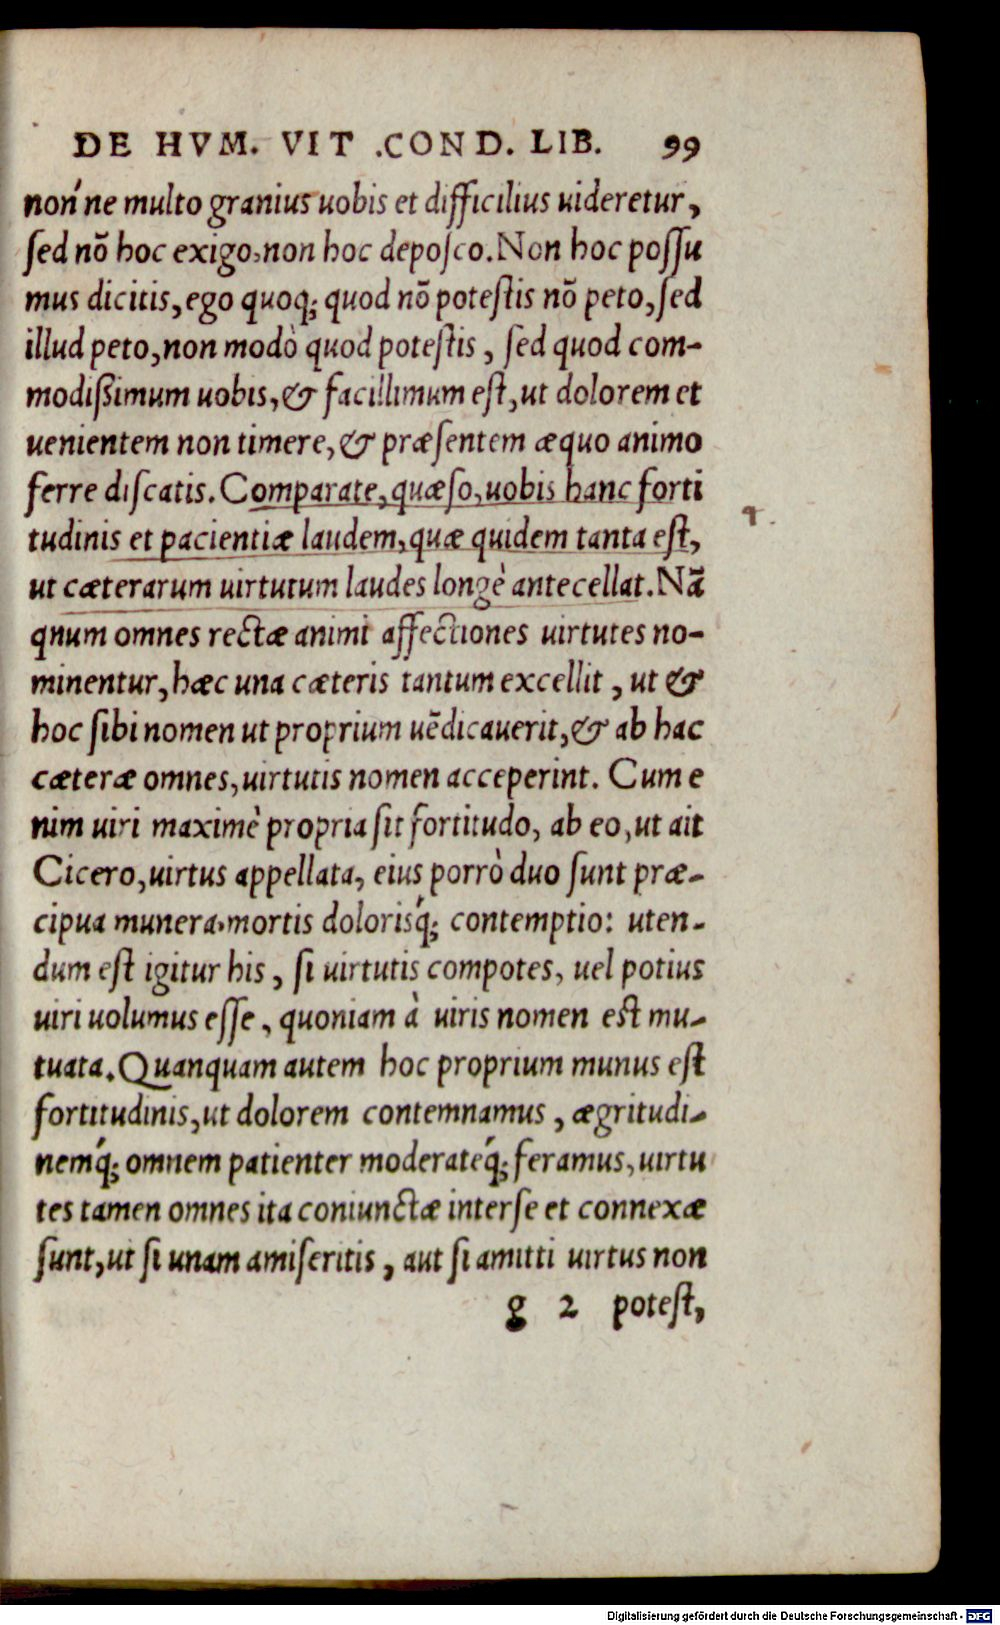 DE HVM. VIT .COND. LIB. 99
non'ne multo granius uobis et difficilius uideretur,
sed nõ hoc exigo, non hoc deposco. Non hoc possu
mus dicitis, ego quoq; quod nõ potestis nõ peto, sed
illud peto, non modò quod potestis, sed quod com-
modißimum uobis, & facillimum est, ut dolorem et
uenientem non timere, & præsentem æquo animo
ferre discatis. Comparate, quæso, uobis hanc forti
tudinis et pacientiæ laudem, quæ quidem tanta est,
ut cæterarum uirtutum laudes longè antecellat. Nã
qnum omnes rectæ animi affectiones uirtutes no-
minentur, hæc una cæteris tantum excellit, ut &
hoc sibi nomen ut proprium uẽdicauerit, & ab hac
cæteræ omnes, uirtutis nomen acceperint. Cum e
nim uiri maximè propria sit fortitudo, ab eo, ut ait
Cicero, uirtus appellata, eius porrò duo sunt præ-
cipua munera, mortis dolorisq́; contemptio: uten-
dum est igitur his, si uirtutis compotes, uel potius
uiri uolumus esse, quoniam à uiris nomen est mu-
tuata. Quanquam autem hoc proprium munus est
fortitudinis, ut dolorem contemnamus, ægritudi-
nemq́; omnem patienter moderateq́; feramus, uirtu
tes tamen omnes ita coniunctæ inter se et connexæ
sunt, ut si unam amiseritis, aut si amitti uirtus non
g 2 potest,
Digitalisierung gefördert durch die Deutsche Forschungsgemeinschaft - DFG